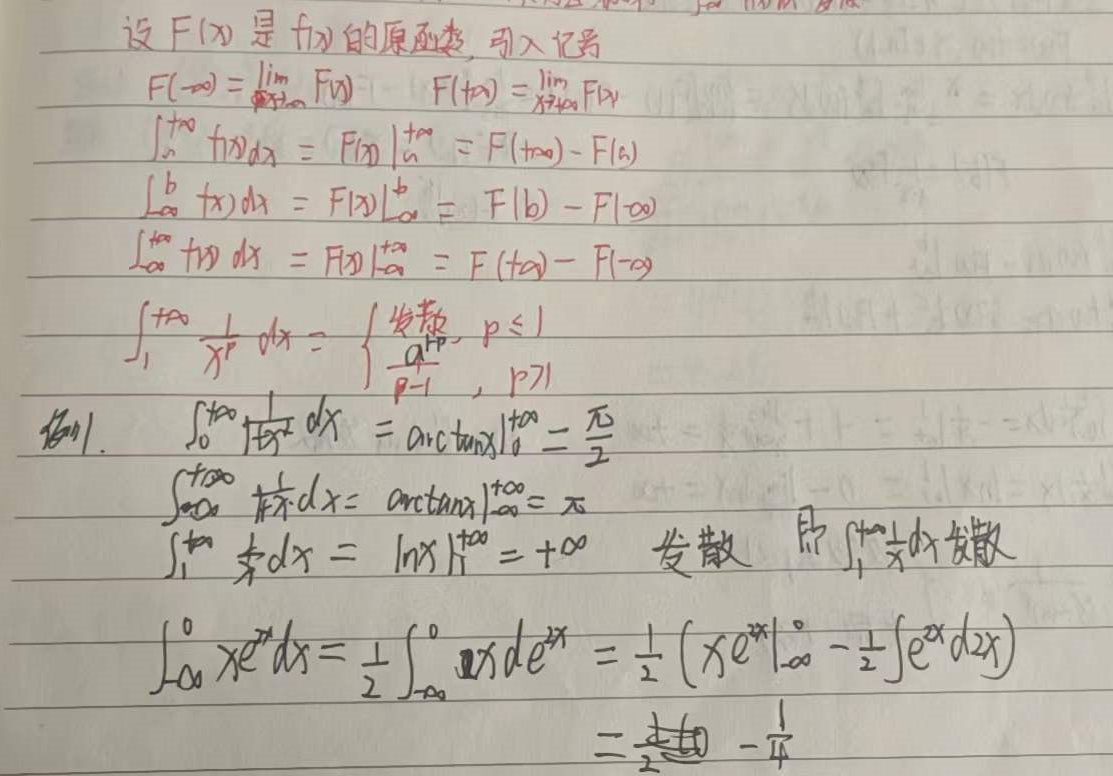 设 F(x) 是 f(x) 的原函数, 引入记号
F(-∞) = lim x→-∞ F(x)  F(+∞) = lim x→+∞ F(x)
∫_a^{+∞} f(x)dx = F(x)|_a^{+∞} = F(+∞) - F(a)
∫_{-∞}^b f(x)dx = F(x)|_{-∞}^b = F(b) - F(-∞)
∫_{-∞}^{+∞} f(x) dx = F(x)|_{-∞}^{+∞} = F(+∞) - F(-∞)
∫_1^{+∞} 1/x^p dx = { 发散, p ≤ 1
a^{1-p}/(p-1), p>1
例1. ∫_0^{+∞} 1/(1+x²) dx = arctanx|_0^{+∞} = π/2
∫_{-∞}^{+∞} 1/(1+x²) dx = arctanx|_{-∞}^{+∞} = π
∫_1^{+∞} 1/x dx = lnx|_1^{+∞} = +∞ 发散 即 ∫_1^{+∞} 1/x dx 发散
∫_{-∞}^0 xe^{2x}dx = 1/2 ∫_{-∞}^0 xde^{2x} = 1/2 (xe^{2x}|_{-∞}^0 - 1/2 ∫e^{2x}d2x)
= -1/4